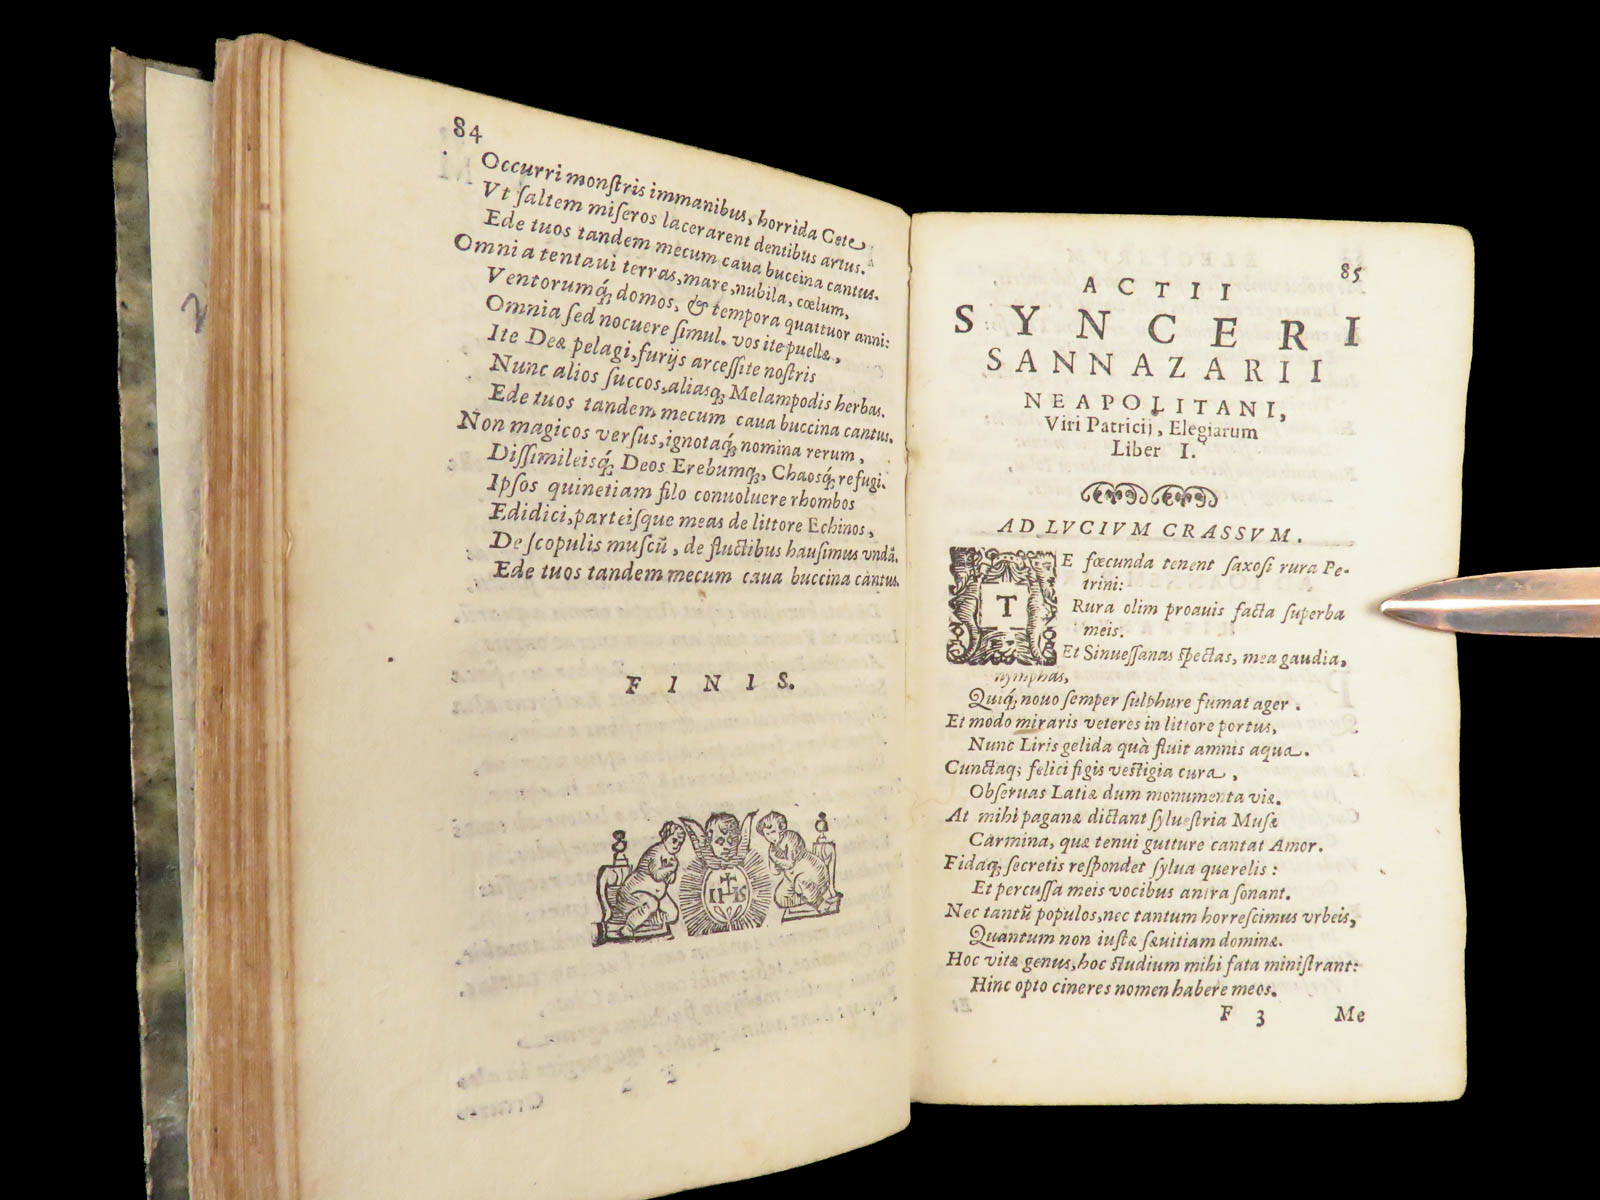 84
Occurri monſtris immanibus, horrida Cete
Vt ſaltem miſeros lacerarent dentibus artus.
Ede tuos tandem mecum caua buccina cantus.
Omnia tentaui terras, mare, nubila, cœlum,
Ventorumq́; domos, & tempora quattuor anni:
Omnia ſed nocuere ſimul. vos ite puellæ,
Ite Deæ pelagi, furijs arceſſite noſtris
Nunc alios ſuccos, aliasq; Melampodis herbas.
Ede tuos tandem mecum caua buccina cantus.
Non magicos verſus, ignotaq́; nomina rerum,
Diſſimileisq́; Deos Erebumq;, Chaosq́; refugi.
Ipſos quinetiam filo conuoluere rhombos
Edidici, parteiſque meas de littore Echinos,
De ſcopulis muſcū, de fluctibus hauſimus vndā.
Ede tuos tandem mecum caua buccina cantus.
F I N I S.
IHS
85
ACTII
SYNCERI
SANNAZARII
NEAPOLITANI,
Viri Patricij, Elegiarum
Liber I.
AD LVCIVM CRASSVM.
TE fœcunda tenent ſaxoſi rura Pe-
trini:
Rura olim proauis facta ſuperba
meis.
Et Sinueſſanas ſpectas, mea gaudia,
nymphas,
Quiq́; nouo ſemper ſulphure fumat ager.
Et modo miraris veteres in littore portus,
Nunc Liris gelida quà fluit amnis aqua.
Cunctaq; felici figis veſtigia cura,
Obſeruas Latiæ dum monumenta viæ.
At mihi paganæ dictant ſylueſtria Muſæ
Carmina, quæ tenui gutture cantat Amor.
Fidaq; ſecretis reſpondet ſylua querelis:
Et percuſſa meis vocibus antra ſonant.
Nec tantū populos, nec tantum horreſcimus vrbeis,
Quantum non iuſtæ ſæuitiam dominæ.
Hoc vitæ genus, hoc ſtudium mihi fata miniſtrant:
Hinc opto cineres nomen habere meos.
F 3 Me